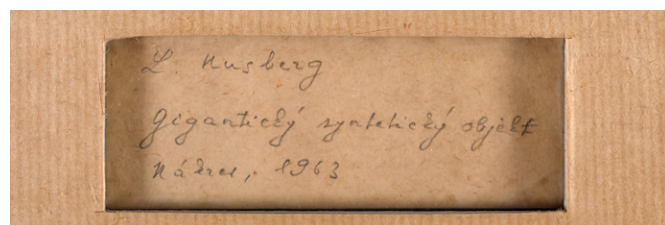 L. Nusberg
Gigantický syntetický objekt
Nákres, 1963